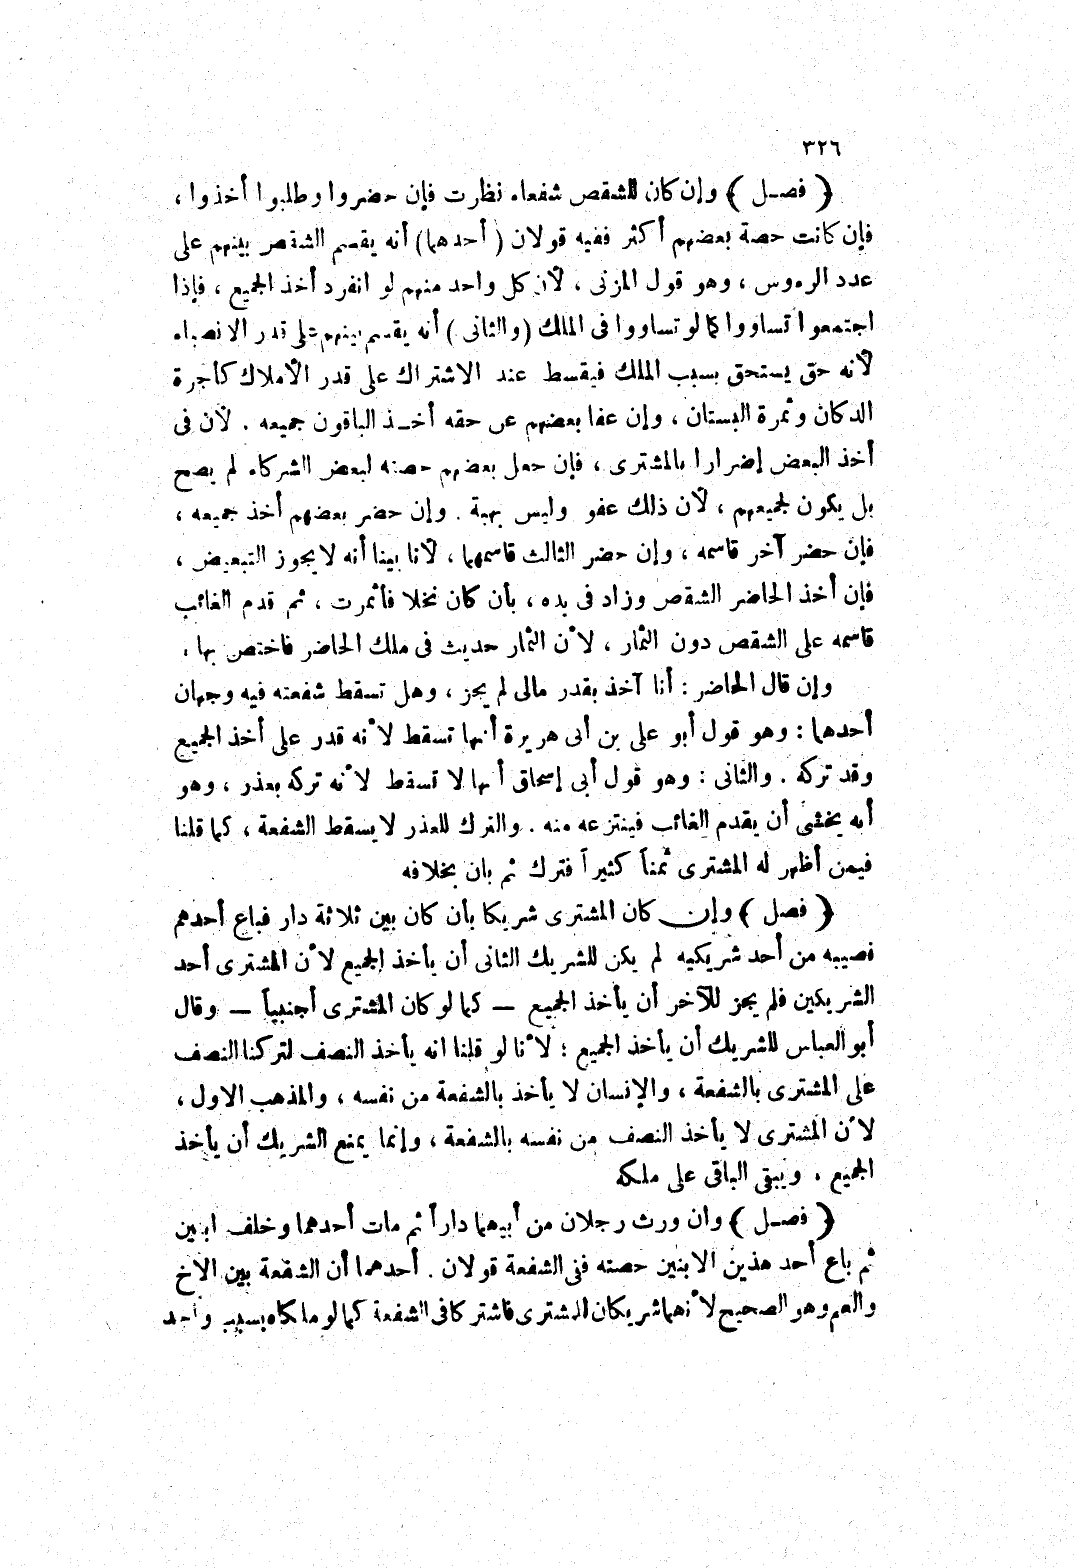 ٣٢٦
﴿ فصـل ﴾ وإن كان للشقص شفعاء نظرت فإن حضروا وطلبوا أخذوا ،
فإن كانت حصة بعضهم أكثر ففيه قولان ( أحدهما ) أنه يقسم الشقص بينهم على
عدد الرءوس ، وهو قول المزنى ، لأن كل واحد منهم لو انفرد أخذ الجميع ، فإذا
اجتمعوا تساووا كما لو تساووا فى الملك ( والثانى ) أنه يقسم بينهم على قدر الانصباء
لأنه حق يستحق بسبب الملك فيقسط عند الاشتراك على قدر الأملاك كأجرة
الدكان وثمرة البستان ، وإن عفا بعضهم عن حقه أخـذ الباقون جميعه . لأن فى
أخذ البعض إضرارا بالمشترى ، فإن جعل بعضهم حصته لبعض الشركاء لم يصح
بل يكون لجميعهم ، لأن ذلك عفو وليس بهبة . وإن حضر بعضهم أخذ جميعه ،
فإن حضر آخر قاسمه ، وإن حضر الثالث قاسمهما ، لأنا بينا أنه لا يجوز التبعيض ،
فإن أخذ الحاضر الشقص وزاد فى يده ، بأن كان نخلا فأثمرت ، ثم قدم الغائب
قاسمه على الشقص دون الثمار ، لأن الثمار حديث فى ملك الحاضر فاختص بها .
وإن قال الحاضر : أنا آخذ بقدر مالى لم يجز ، وهل تسقط شفعته فيه وجهان
أحدهما : وهو قول أبو على بن أبى هريرة أنها تسقط لأنه قدر على أخذ الجميع
وقد تركه . والثانى : وهو قول أبى إسحاق أنها لا تسقط لأنه تركه بعذر ، وهو
أنه يخشى أن يقدم الغائب فينتزعه منه . والترك للعذر لا يسقط الشفعة ، كما قلنا
فيمن أظهر له المشترى ثمناً كثيراً فترك ثم بان بخلافه
﴿ فصل ﴾ وإن كان المشترى شريكا بأن كان بين ثلاثة دار فباع أحدهم
نصيبه من أحد شريكيه لم يكن للشريك الثانى أن يأخذ الجميع لأن المشترى أحد
الشريكين فلم يجز للآخر أن يأخذ الجميع — كما لو كان المشترى أجنبياً — وقال
أبو العباس للشريك أن يأخذ الجميع ؛ لأنا لو قلنا انه يأخذ النصف لتركنا النصف
على المشترى بالشفعة ، والإنسان لا يأخذ بالشفعة من نفسه ، والمذهب الاول ،
لأن المشترى لا يأخذ النصف من نفسه بالشفعة ، وإنما يمنع الشريك أن يأخذ
الجميع . ويبقى الباقى على ملكه
﴿ فصـل ﴾ وان ورث رجلان من أبيهما داراً ثم مات أحدهما وخلف ابنين
ثم باع أحد هذين الابنين حصته ففى الشفعة قولان . أحدهما أن الشفعة بين الأخ
والعم وهو الصحيح لأنهما شريكان للمشترى فاشتركا فى الشفعة كما لو ملكاه بسبب واحد